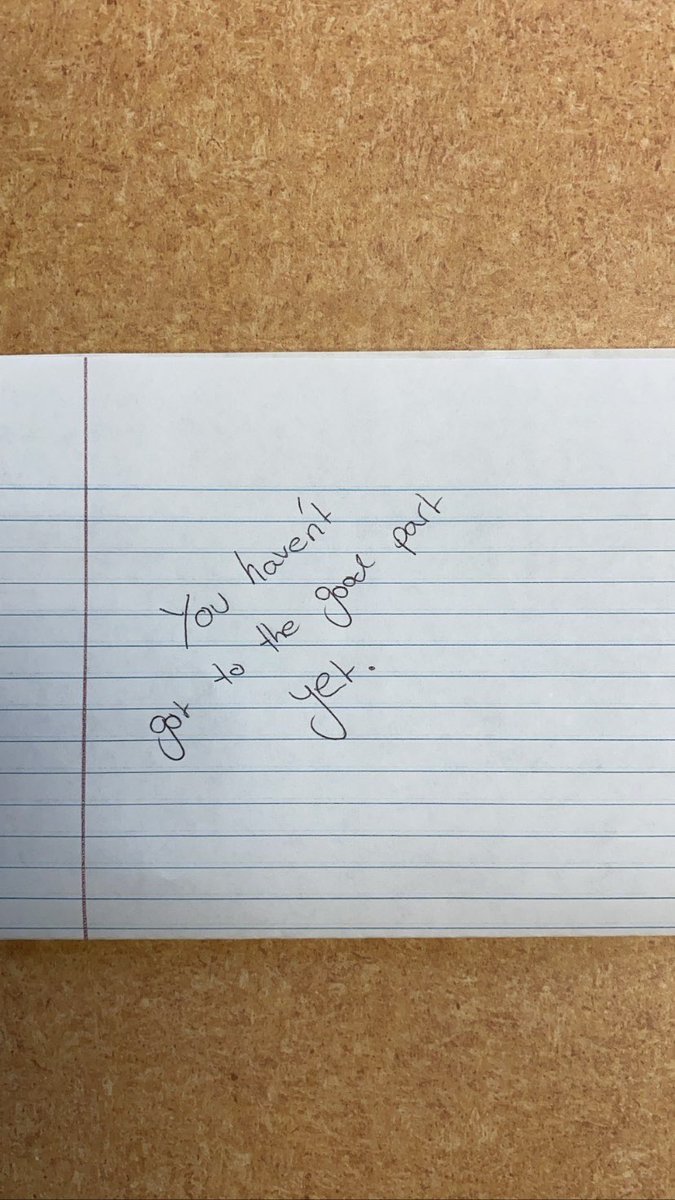 You haven't
got to the good part
yet.